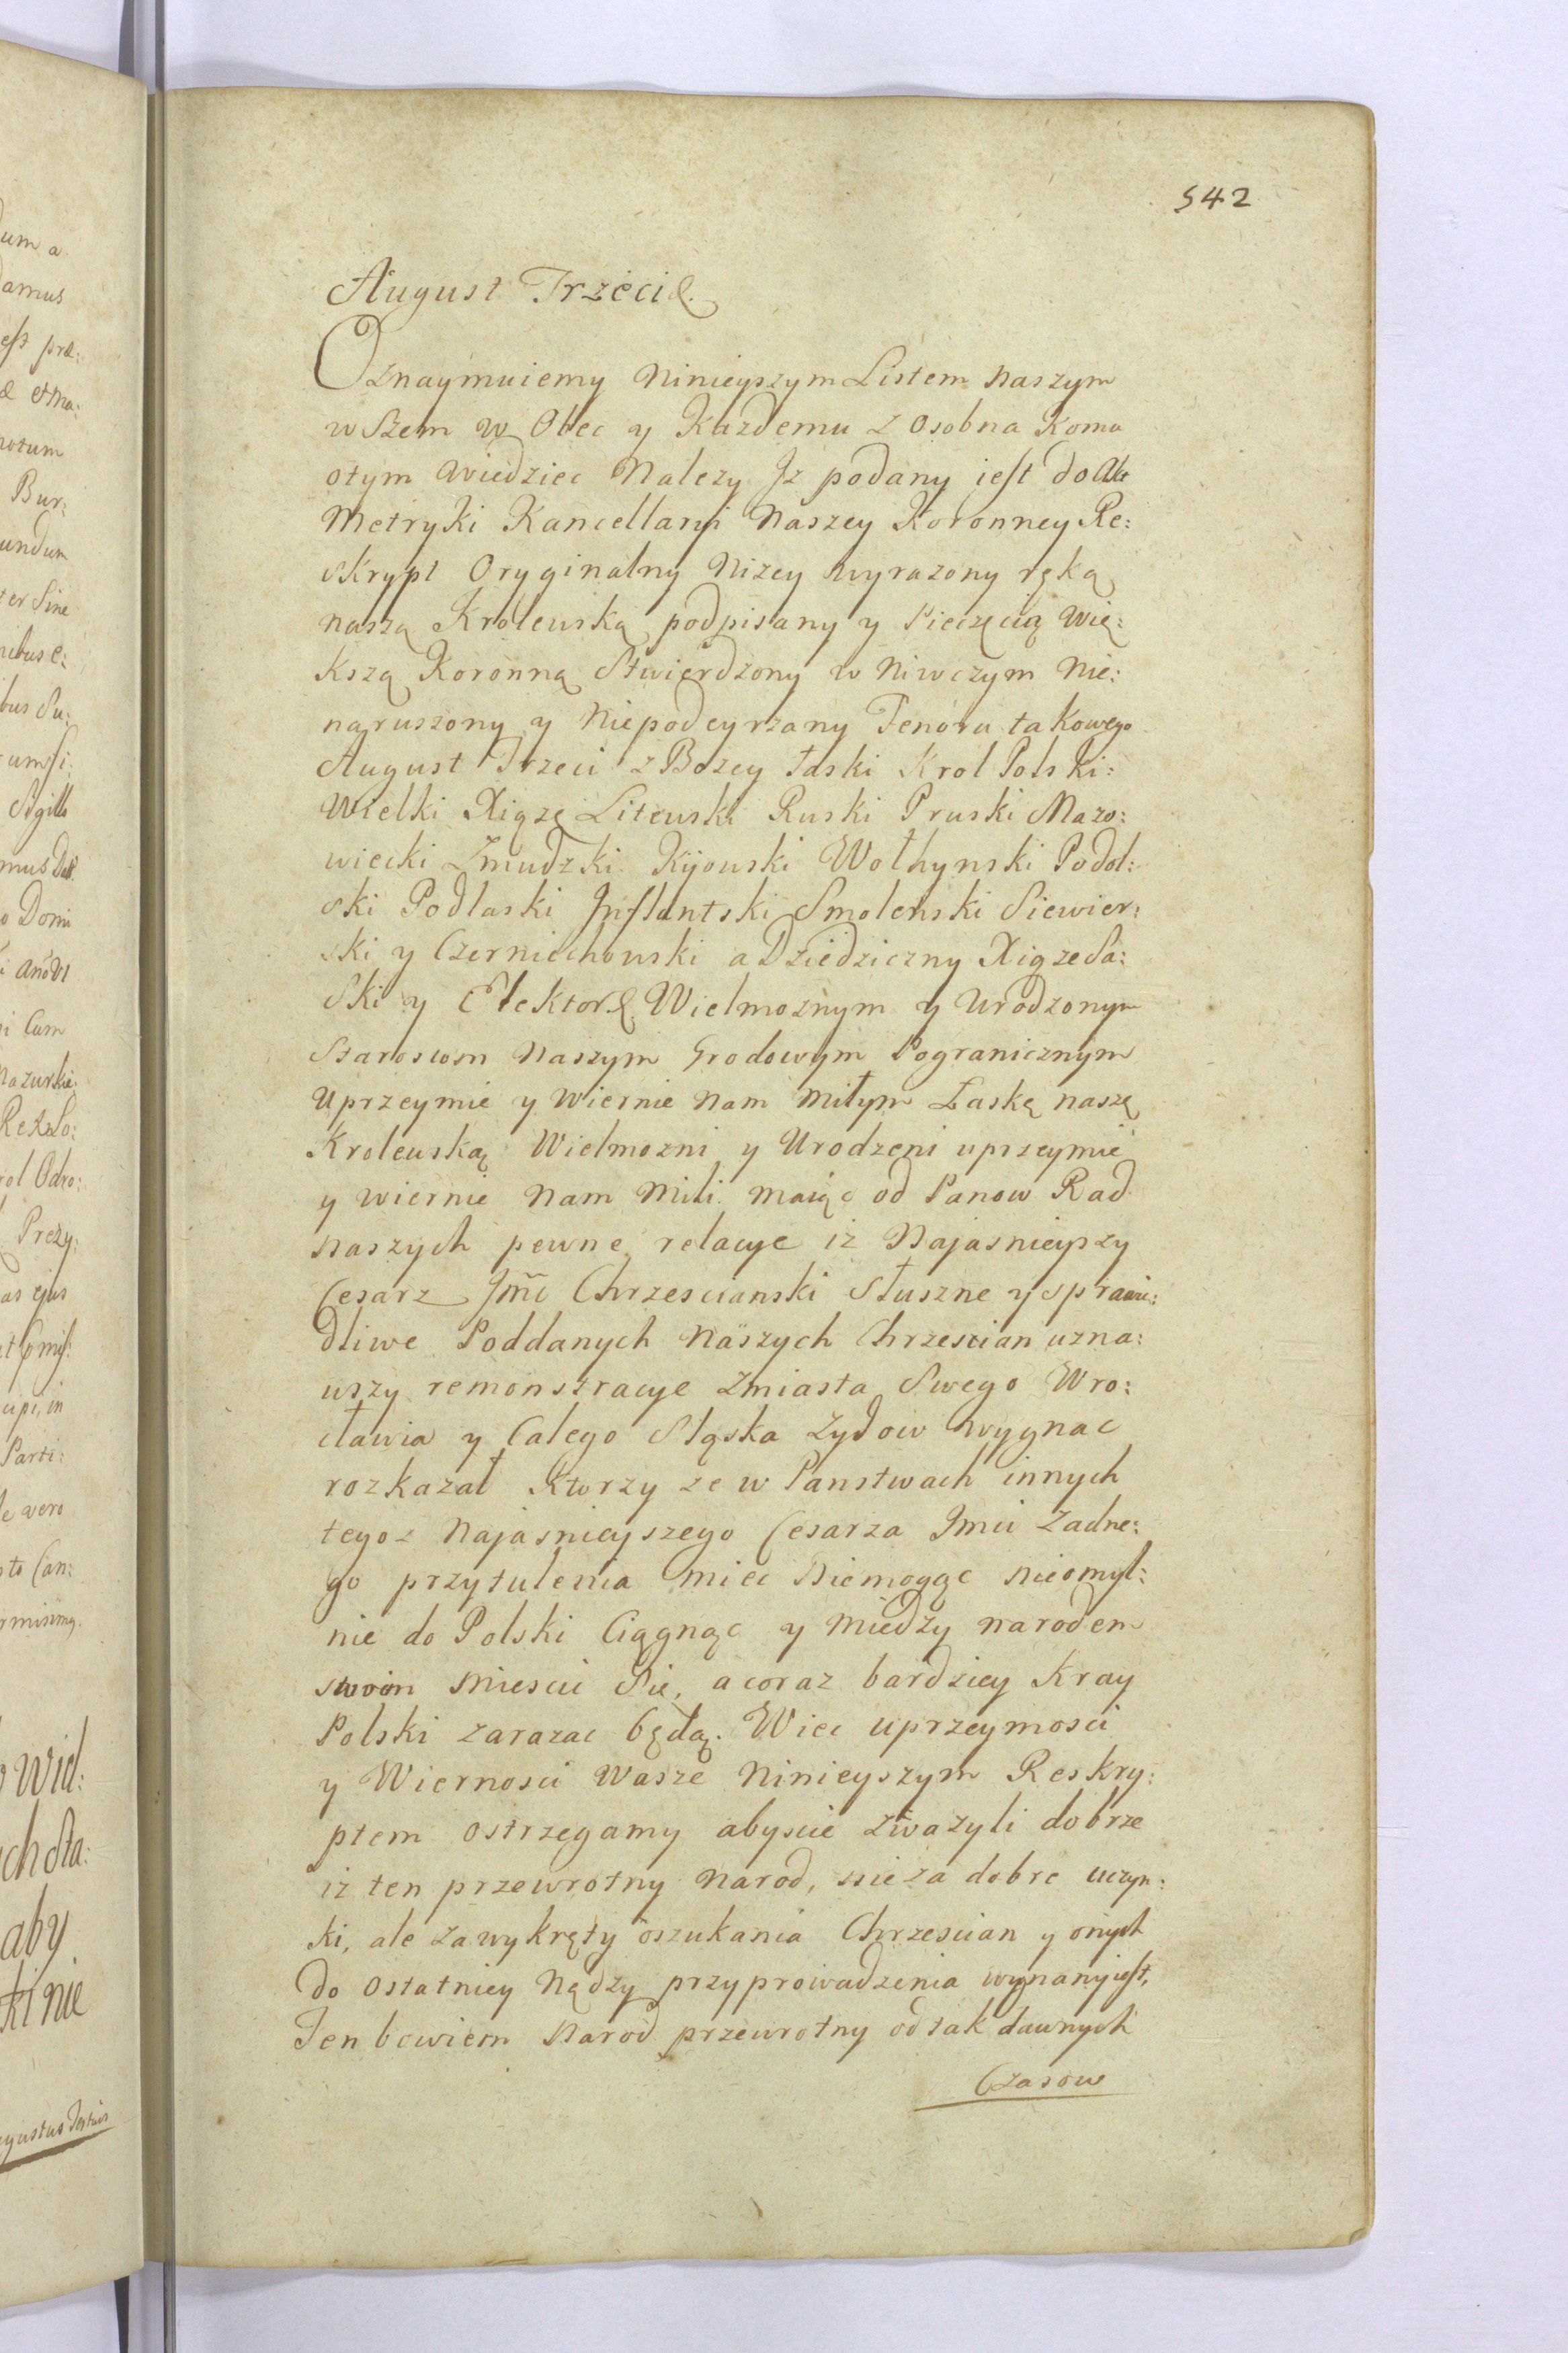 542
August Trzeci &.
Oznaymuiemy Ninieyszym Listem Naszym
wszem w Obec y Kazdemu z Osobna Komu
otym wiedziec Nalezy Jz podany iest do Akt
Metryki Kancellaryi Naszey Koronney Re:
skrypt Oryginalny Nizey wyrazony ręką
naszą Krolewską podpisany y Pieczęcią Wię:
kszą Koronną Stwierdzony w Niwczym Nie:
naruszony y Niepodeyrzany Tenoru takowego
August Trzeci z Bozey łaski Krol Polski:
Wielki Xiąze Litewski Ruski Pruski Mazo:
wiecki Zmudzki Kijowski Wołhynski Podol:
ski Podlaski Jnflantski Smolenski Siewier:
ski y Czerniechowski a Dziedziczny Xiąze Sa:
Ski y Elektor &. Wielmoznym y Urodzonym
Starostom Naszym Grodowym Pogranicznym
Uprzeymie y Wiernie Nam Miłym Łaskę naszą
Krolewską Wielmozni y Urodzeni uprzeymie
y wiernie Nam Mili. maiąc od Panow Rad
Naszych pewne relacye iz Najasnieyszy
Cesarz Jm̃ć Chrzescianski Słuszne y sprawie:
dliwe Poddanych Naszych Chrzescian uzna:
wszy remonstracye zmiasta Swego Wro:
cławia y Całego Sląska Zydow wygnac
rozkazał Ktorzy ze w Panstwach innych
tegoz Najasnieyszego Cesarza Jmci Zadne:
go przytulenia miec Niemogąc nieomyl:
nie do Polski Ciągnąc y Miedzy narodem
swoim Miescic Sie, a coraz bardziey Kray
Polski zarazac będą. Wiec uprzeymosci
y Wiernosci Wasze Ninieyszym Reskry:
ptem ostrzegamy abyscie zwazyli dobrze
iz ten przewrotny Narod, nie za dobre uczyn:
ki, ale za wykręty oszukania Chrzescian y onych
do ostatniey Nędzy przyprowadzenia wygnany iest,
Ten bowiem Narod przewrotny od tak dawnych
Czasow